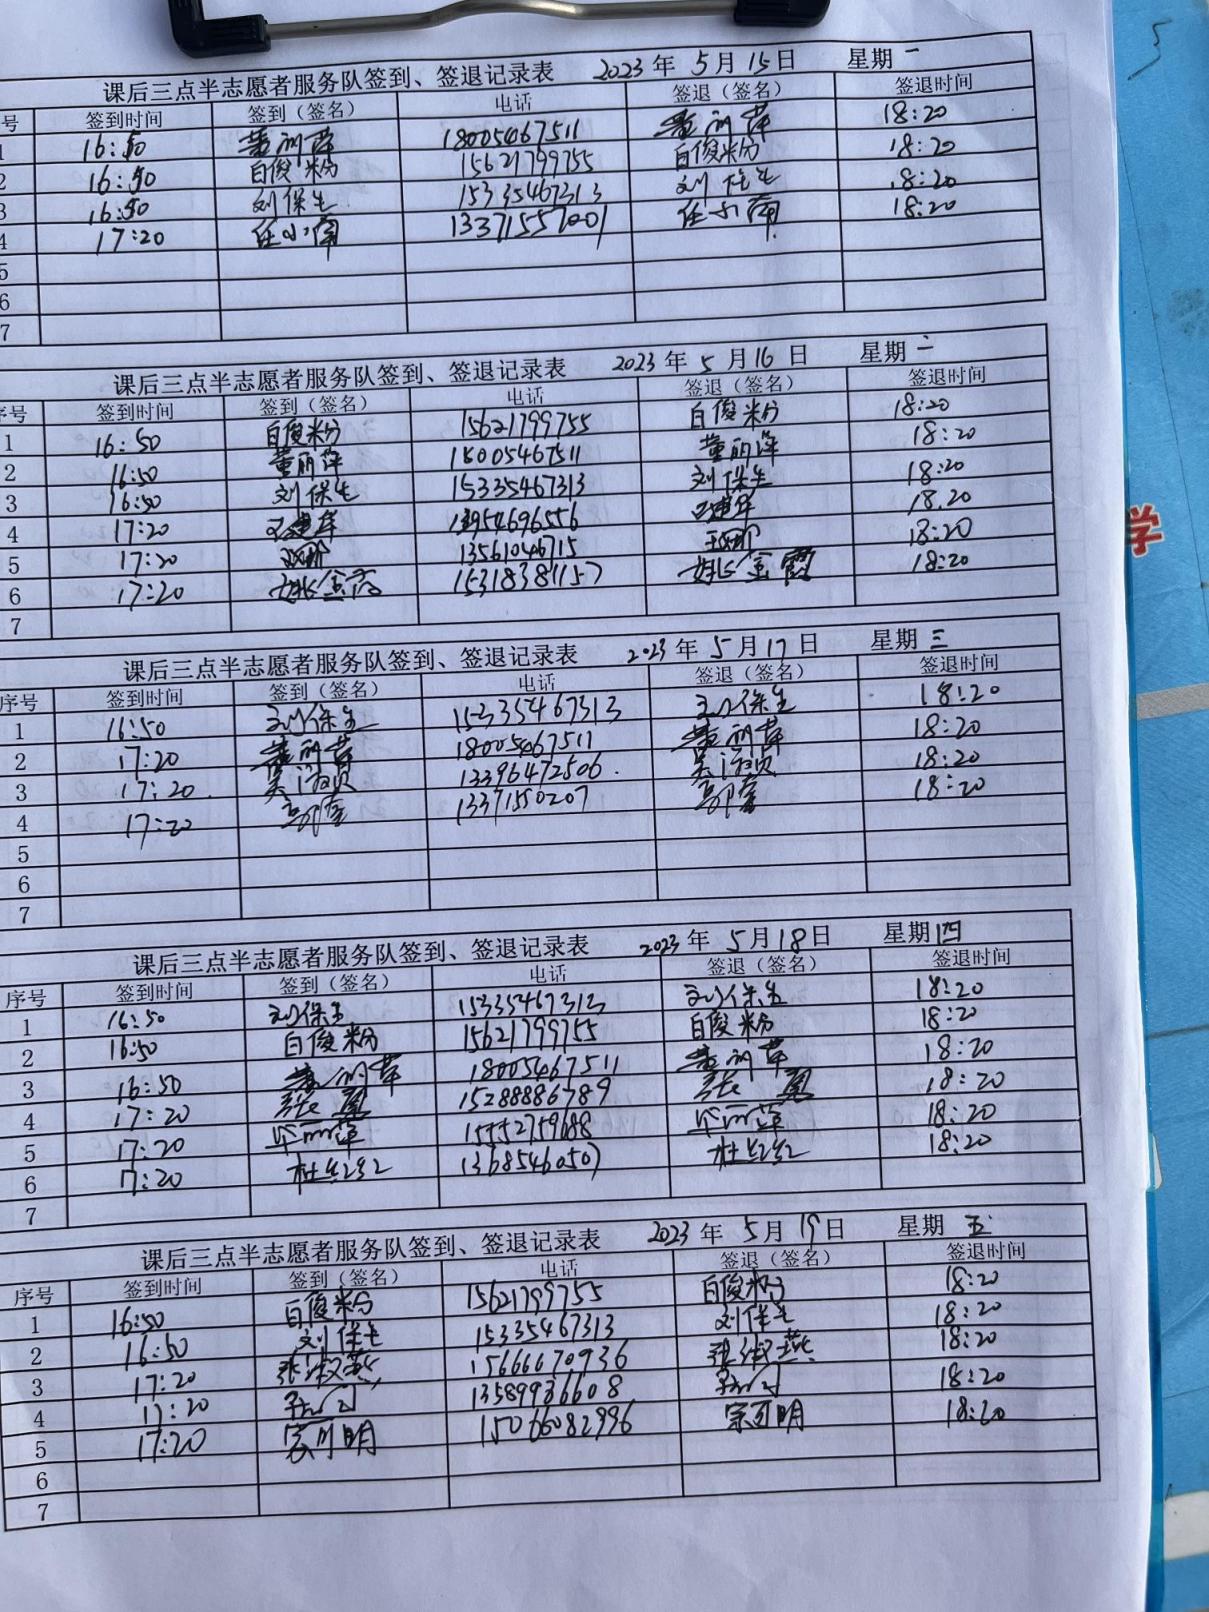 课后三点半志愿者服务队签到、签退记录表 2023年5月15日 星期一
号 签到时间 签到（签名） 电话 签退（签名） 签退时间
1 16:50 董丽萍 18005467511 董丽萍 18:20
2 16:50 白俊粉 15621799755 白俊粉 18:20
3 16:50 刘保生 15335467313 刘保生 18:20
4 17:20 任小 13371557001 任小 18:20
5
6
7
课后三点半志愿者服务队签到、签退记录表 2023年5月16日 星期二
序号 签到时间 签到（签名） 电话 签退（签名） 签退时间
1 16:50 白俊粉 15621799755 白俊粉 18:20
2 16:50 董丽萍 18005467511 董丽萍 18:20
3 16:50 刘保生 15335467313 刘保生 18:20
4 17:20 13954696556 18.20
5 17:20 13561046715 18:20
6 17:20 姚金霞 15318381157 姚金霞 18:20
7
课后三点半志愿者服务队签到、签退记录表 2023年5月17日 星期三
序号 签到时间 签到（签名） 电话 签退（签名） 签退时间
1 16:50 刘保生 15335467313 刘保生 18:20
2 17:20 董丽萍 18005467511 董丽萍 18:20
3 17:20 吴 13396472506 吴 18:20
4 17:20 13371550207 18:20
5
6
7
课后三点半志愿者服务队签到、签退记录表 2023年5月18日 星期四
序号 签到时间 签到（签名） 电话 签退（签名） 签退时间
1 16:50 刘保生 15335467313 刘保生 18:20
2 16:50 白俊粉 15621799755 白俊粉 18:20
3 16:50 董丽萍 18005467511 董丽萍 18:20
4 17:20 张 15288886789 张 18:20
5 17:20 丽萍 15552759688 丽萍 18:20
6 17:20 杜红红 13685460507 杜红红 18:20
7
课后三点半志愿者服务队签到、签退记录表 2023年5月19日 星期五
序号 签到时间 签到（签名） 电话 签退（签名） 签退时间
1 16:50 白俊粉 15621799755 白俊粉 18:20
2 16:50 刘保生 15335467313 刘保生 18:20
3 17:20 张淑燕 15666670936 张淑燕 18:20
4 17:20 13589936608 18:20
5 17:20 宗可明 15066082996 宗可明 18:20
6
7
学